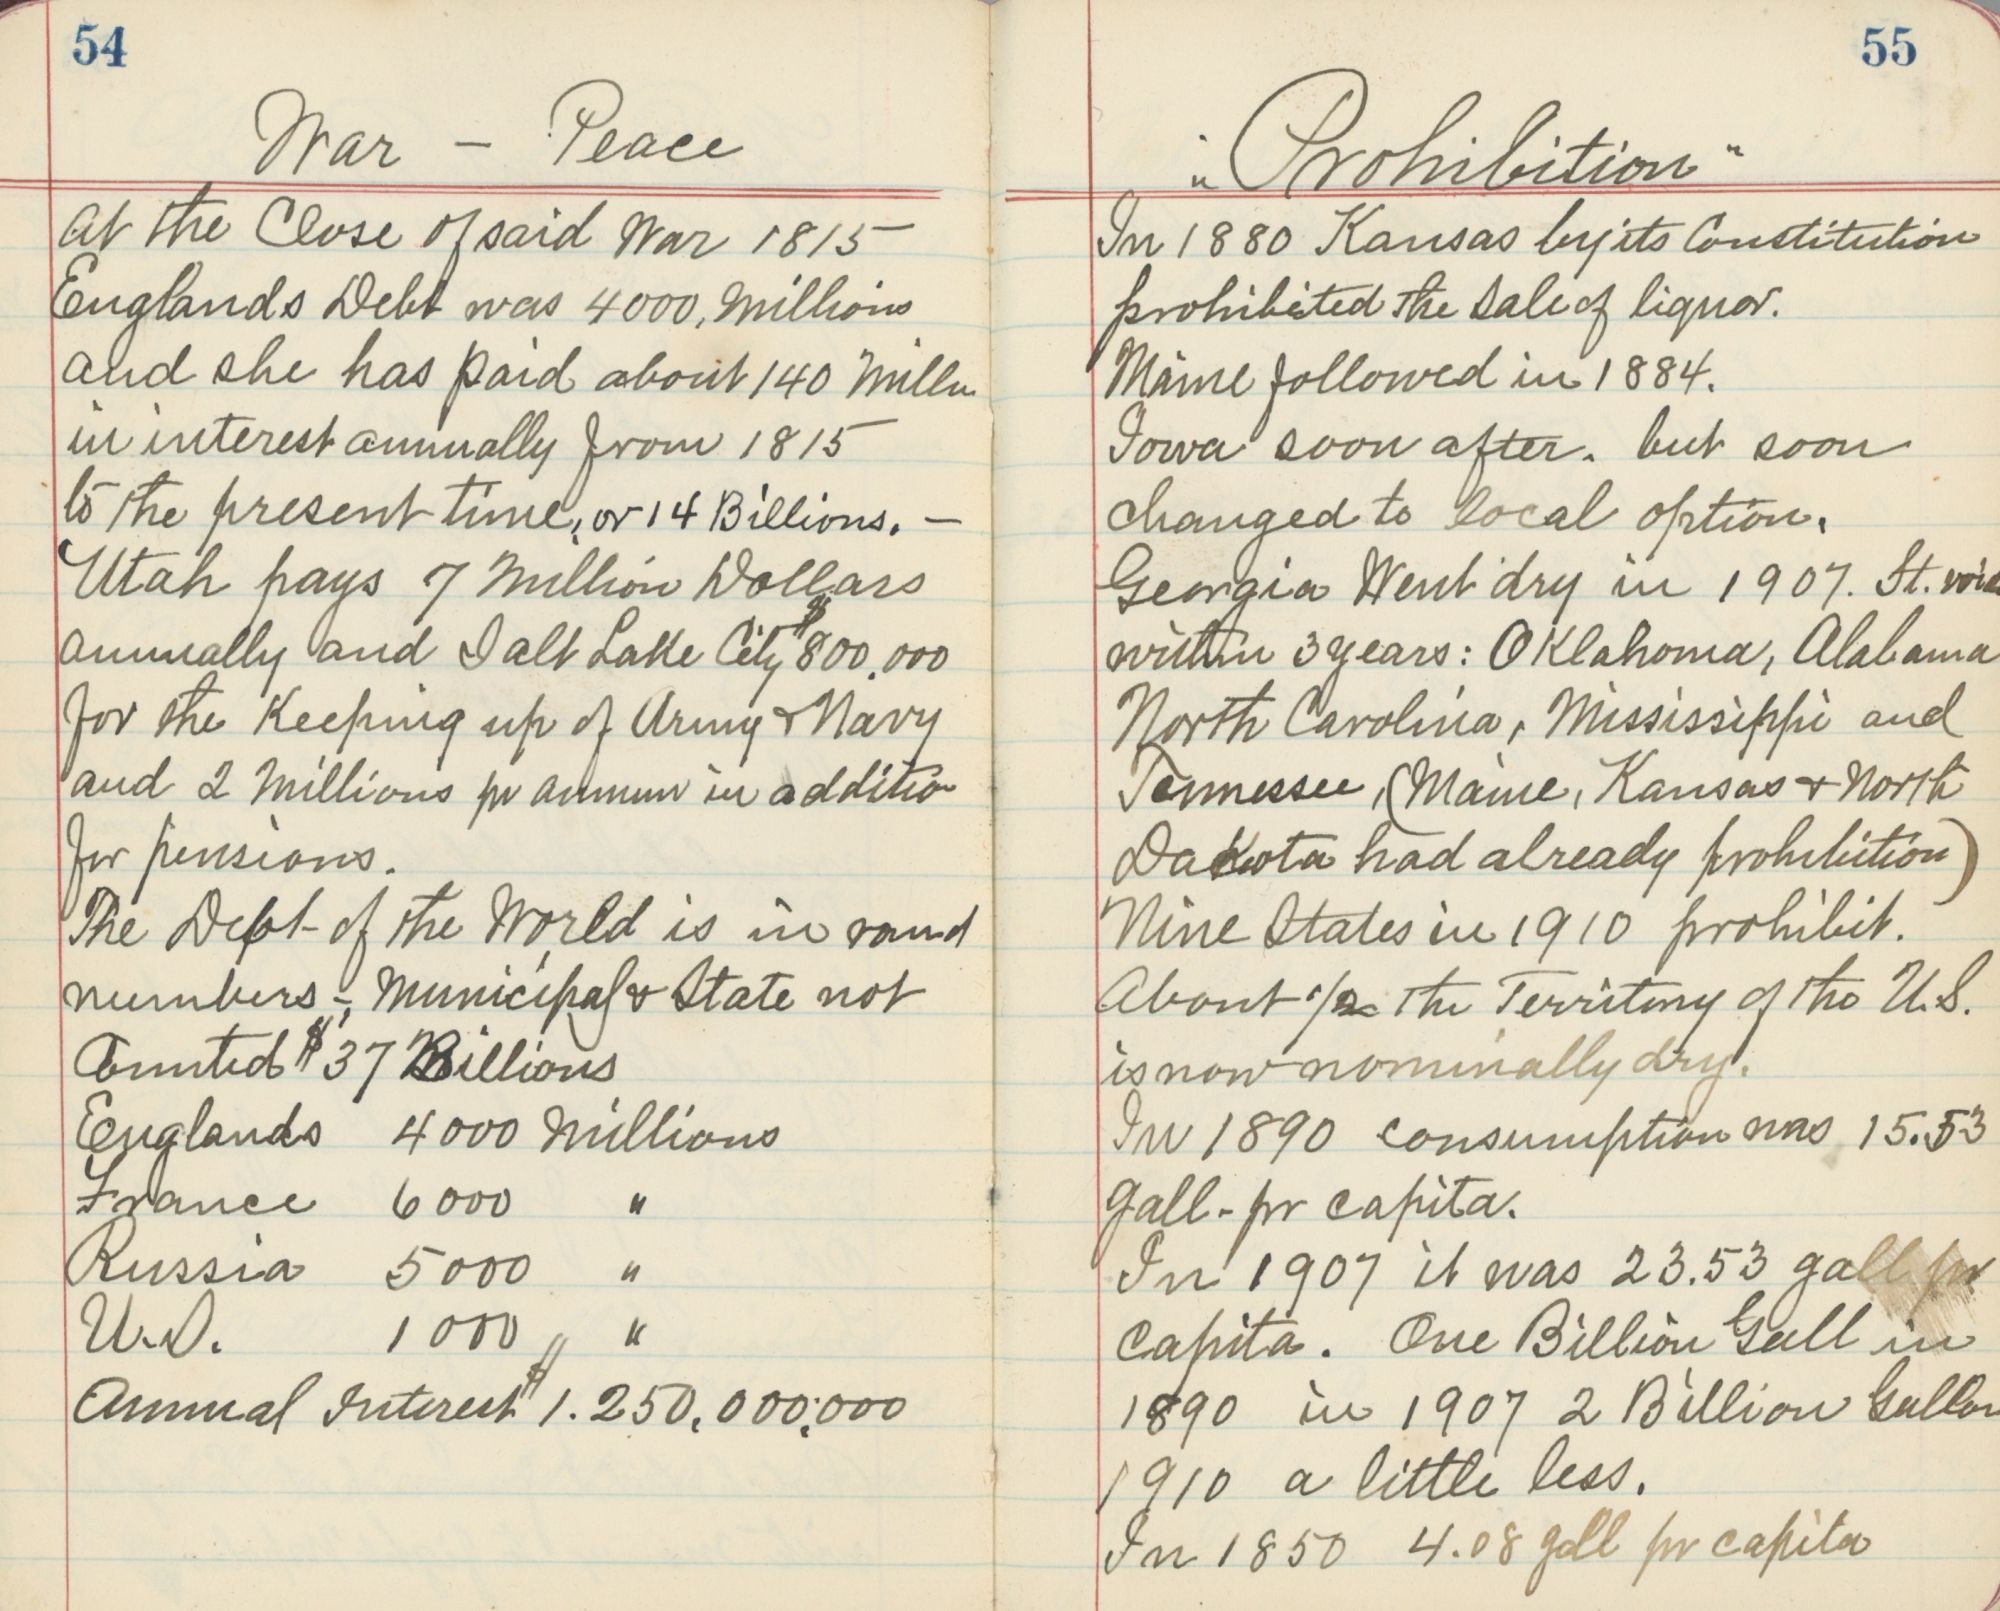 54
War – Peace
At the Close of said War 1815
Englands Debt was 4000, Millions
and she has paid about 140 Milln
in interest annually from 1815
to the present time, or 14 Billions. –
Utah pays 7 Million Dollars
annually and Salt Lake City $800,000
for the Keeping up of Army & Navy
and 2 Millions pr annum in additio
for pensions.
The Debt of the World is in round
numbers, – Municipal & State not
Counted $37 Billions
Englands 4000 Millions
France 6000 "
Russia 5000 "
U.S. 1000 "
Annual Interest $1.250,000,000
55
"Prohibition"
In 1880 Kansas by its Constitution
prohibited the Sale of liquor.
Maine followed in 1884.
Iowa soon after. but soon
changed to local option.
Georgia Went dry in 1907. St.
within 3 years: Oklahoma, Alabama
North Carolina, Mississippi and
Tennessee, (Maine, Kansas & North
Dakota had already prohibition)
Nine States in 1910 prohibit.
About 1/2 the Territory of the U.S.
is now nominally dry.
In 1890 consumption was 15.53
Gall - pr capita.
In 1907 it was 23.53 gall pr
Capita. One Billion Gall in
1890 in 1907 2 Billion Gallon
1910 a little less.
In 1850 4.08 gall pr capita